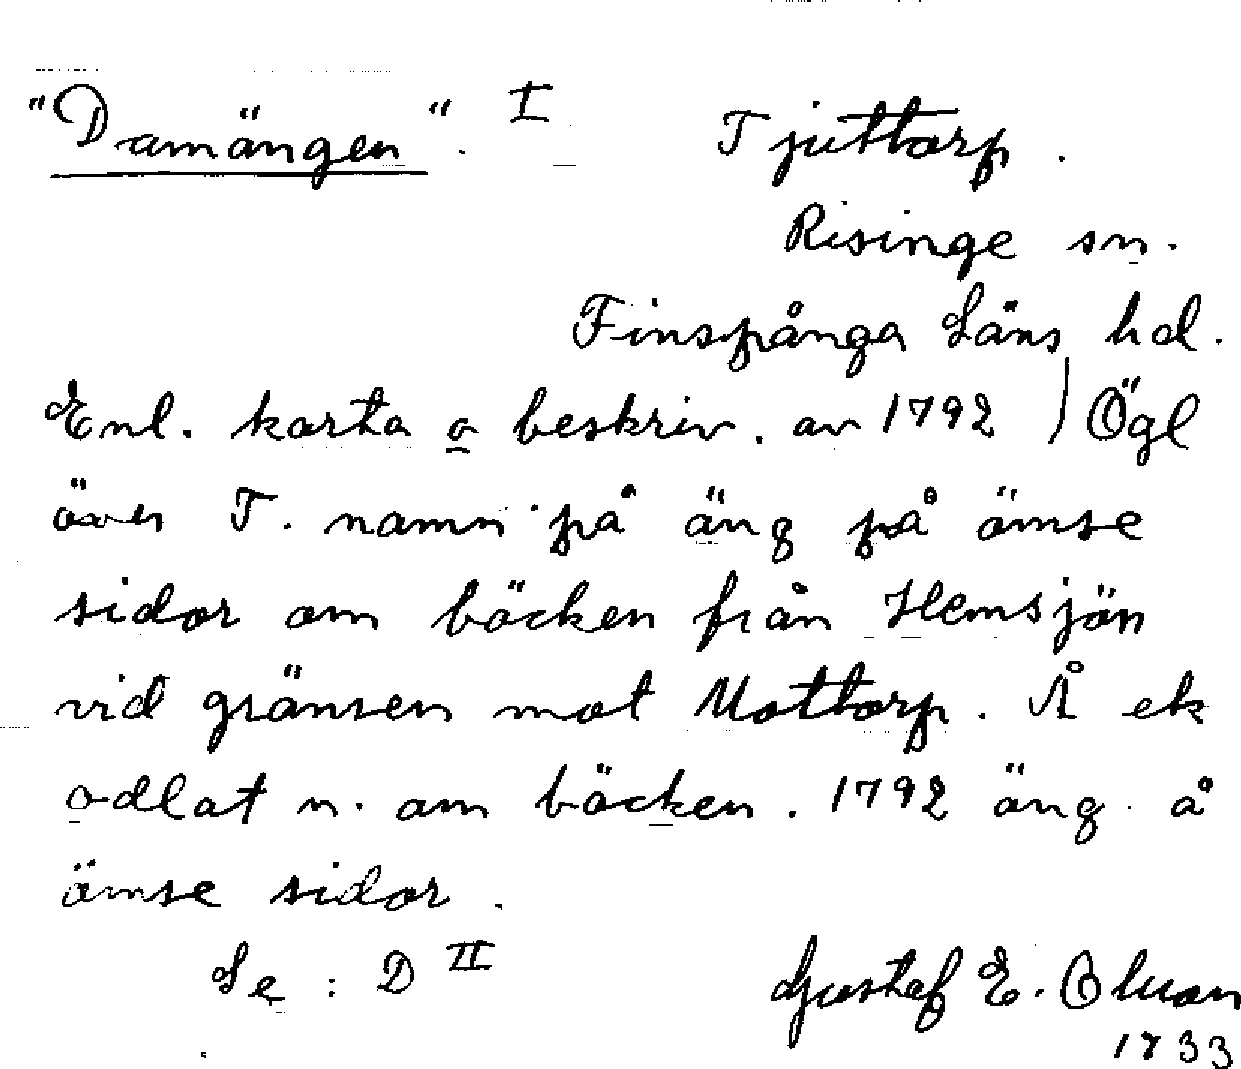 "Damängen". I Tjuttorp.
Risinge sn.
Finspånga Läns hd.
Enl. karta o beskriv. av 1792 ) Ögl
över T. namn på äng på ömse
sidor om bäcken från Hemsjön
vid gränsen mot Mottorp. Å ek
odlat n. om bäcken. 1792 äng å
ömse sidor.
Se : D II Gustaf E.
1733